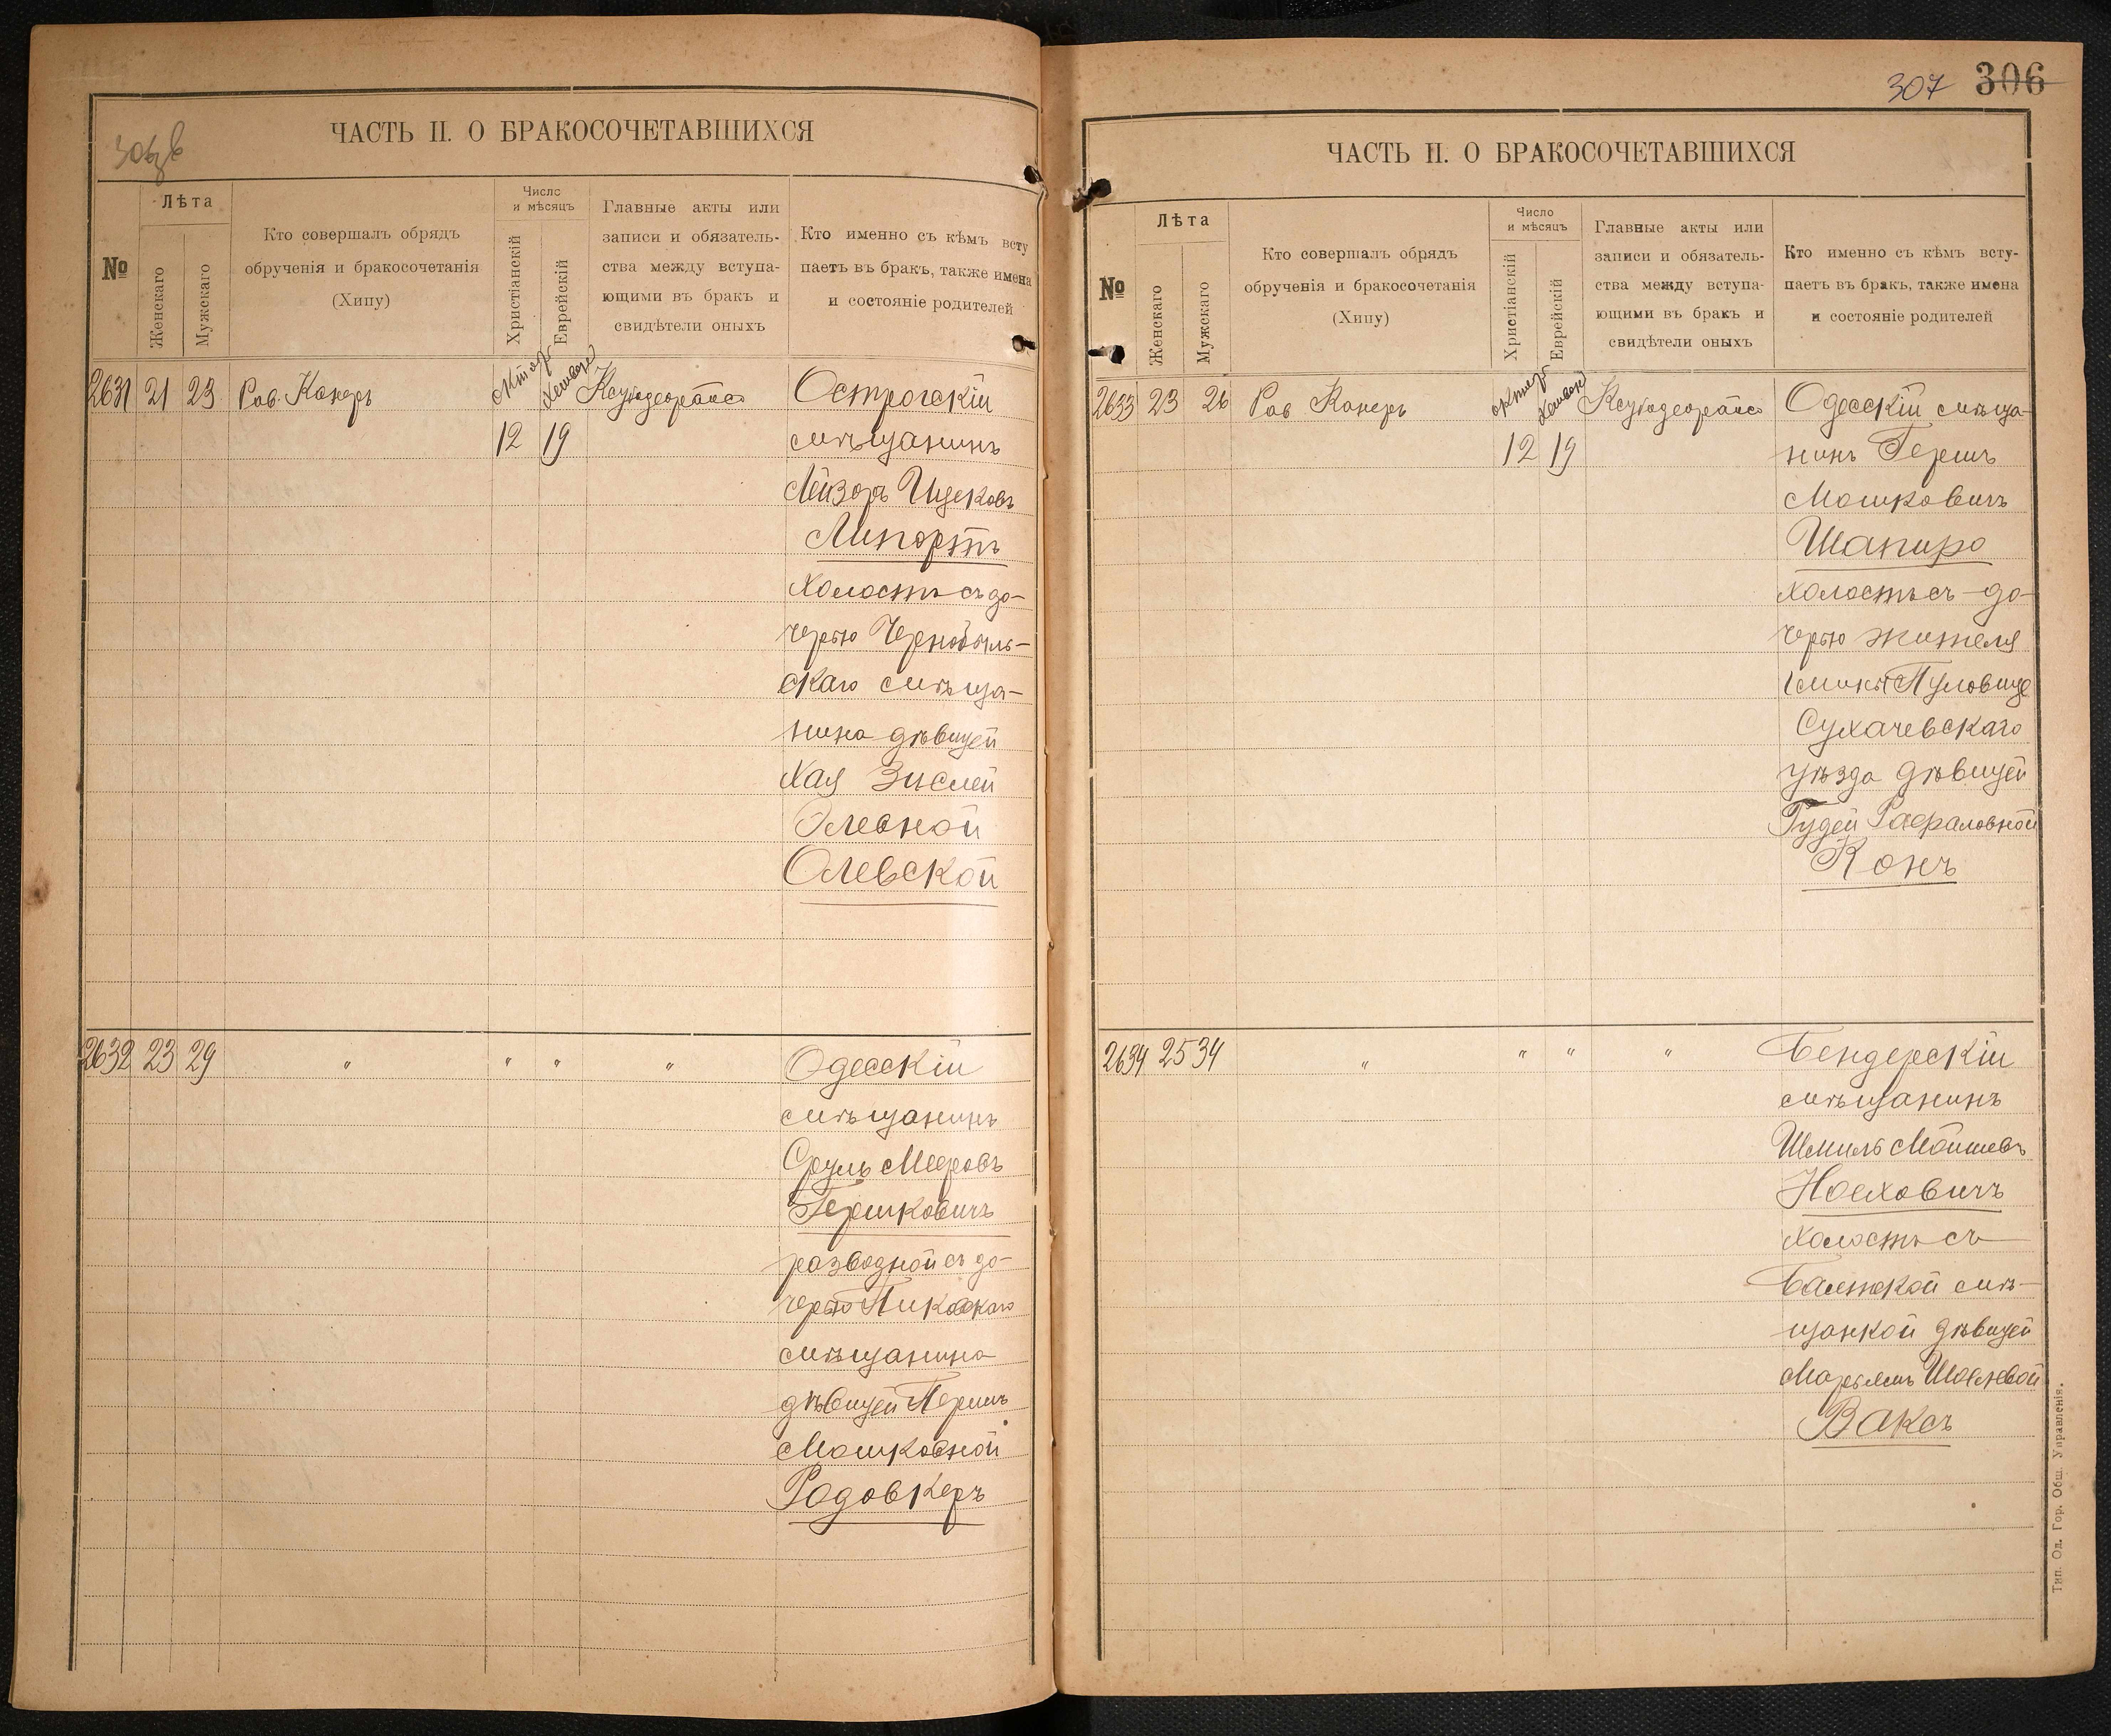 306
307
306
ЧАСТЬ II. О БРАКОСОЧЕТАВШИХСЯ
№
Лѣта
Женскаго
Мужскаго
Кто совершалъ обрядъ
обрученія и бракосочетанія
(Хипу)
Число
и мѣсяцъ
Христіанскій
Еврейскій
Главные акты или
записи и обязатель-
ства между вступа-
ющими въ бракъ и
свидѣтели оныхъ
Кто именно съ кѣмъ всту
паетъ въ бракъ, также имена
и состояніе родителей
2631 21 23 Рав. Канеръ октяр Хешван Острогскій
12 19 мѣщанинъ
Лейзоръ Ицековъ
Липортъ
холостъ съ до-
черью Чернобыль-
скаго мѣща-
нина дѣвицей
Хая Зислей
Олевной
Олевской
2632 23 29 " " " " Одесскій
мѣщанинъ
Сруль Мееровъ
Гершковичъ
разводной съ до-
черью Пиковскаго
мѣщанина
дѣвицей Перль
Мошковной
Радовкеръ
ЧАСТЬ II. О БРАКОСОЧЕТАВШИХСЯ
№
Лѣта
Женскаго
Мужскаго
Кто совершалъ обрядъ
обрученія и бракосочетанія
(Хипу)
Число
и мѣсяцъ
Христіанскій
Еврейскій
Главные акты или
записи и обязатель-
ства между вступа-
ющими въ бракъ и
свидѣтели оныхъ
Кто именно съ кѣмъ всту-
паетъ въ бракъ, также имена
и состояніе родителей
2633 23 26 Рав Канеръ октяр Хешван Одесскій мѣща-
12 19 нинъ Гершъ
Мошковичъ
Шапиро
холостъ съ до-
черью жителя
Гмины
Сухачевскаго
уѣзда дѣвицей
Гудей Рафаловной
Конъ
2634 25 34 " " " " Бендерскій
мѣщанинъ
Шмиль Мойшевъ
Ноеховичъ
холостъ съ
Балтской мѣ-
щанкой дѣвицей
Марьямъ
Ваксъ
Тип. Од. Гор. Общ. Управленія.